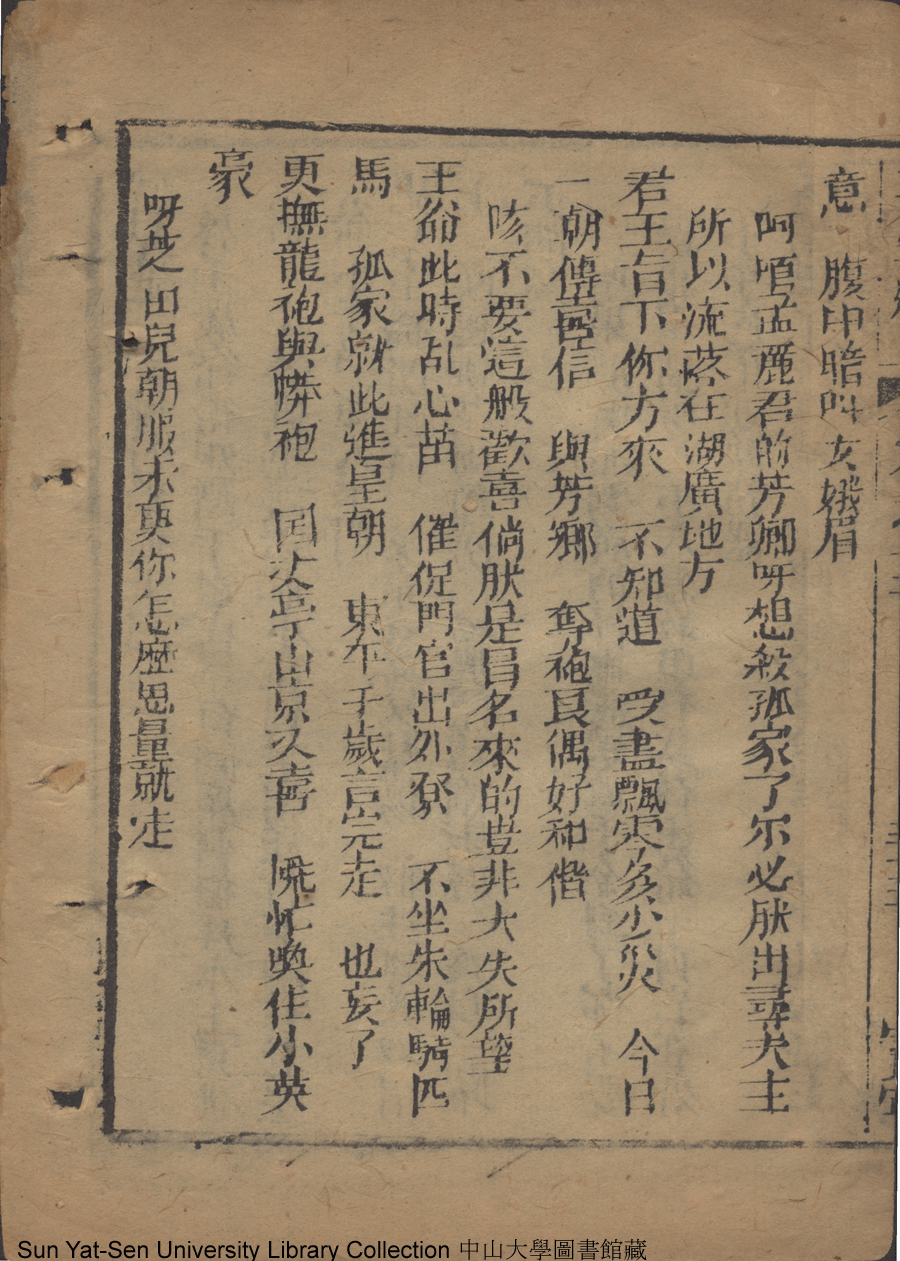 意　腹中暗叫女娥眉
呵唷孟麗君的芳卿呀想殺孤家了尔必肰出尋夫主
所以流落在湖廣地方
君王旨下你方來　不知道　受盡飄零多少災　今日
一朝傳啚信　與芳鄉　奪袍良偶好和偕
咳不要這般歡喜倘肰是冒名來的豈非大失所望
王爺此時乱心苗　催促門官出外寮　不坐朱輪騎匹
馬　孤家就此進皇朝　東平千歲言完走　也妄了
更換龍袍與蟒袍　国丈亭山京又喜　慌忙喚住小英
豪
呀芝田兒朝服未更你怎麽思量就走
Sun Yat-Sen University Library Collection 中山大學圖書館藏